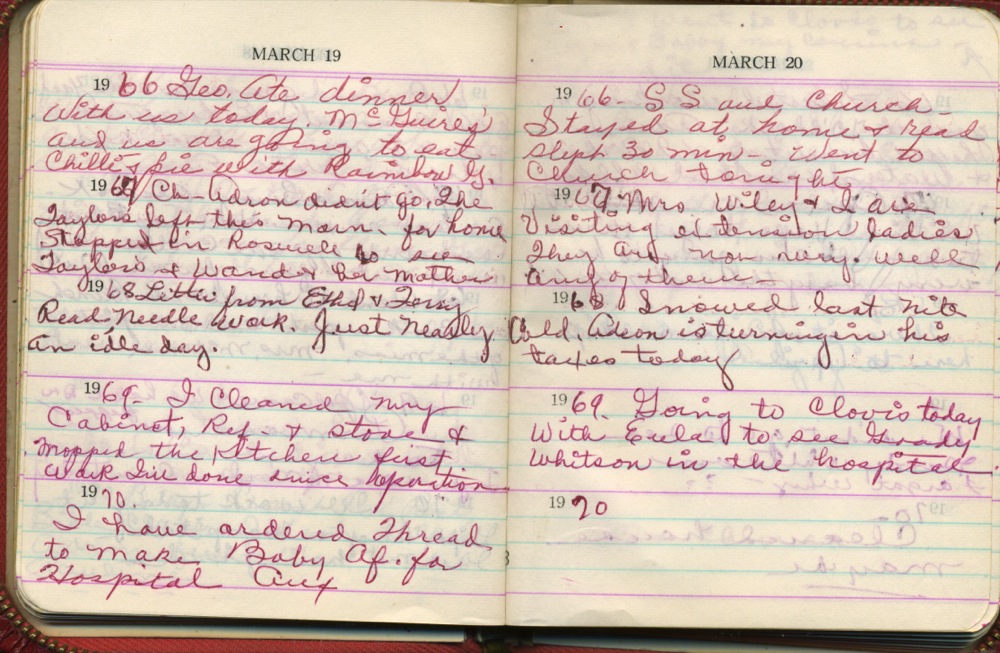 MARCH 19
1966 Geo. Ate dinner
With us today. McGuirey's
and us are going to eat
Chilli & pie with Rainbow G.
1967 Ch- Adron didn't go, The
Taylors left this Morn. for home
Stopped in Roswell to see
Taylors & Wand & her Mother
1968 Letter from Ethel &
Read Needle work. Just Neasly
an idle day.
1969- I Cleaned my
Cabinet, Ref. & stove &
Mopped the Kitchen first
Work I've done since Opertion
1970.
I have ordered Thread
to make Baby Af. for
Hospital Aux
MARCH 20
1966- S S and Church
Stayed at home & read
Sleph 30 min- Went to
Church tonight
1967 Mrs Wiley & I are
Visiting extension ladies
They are non very. well
any of them-
1968 Snowed last nite
Cold. Adron is turning in his
taxes today
1969. Going to Clovis today
With Eula to see Grady
Whitson in the hospital
1970